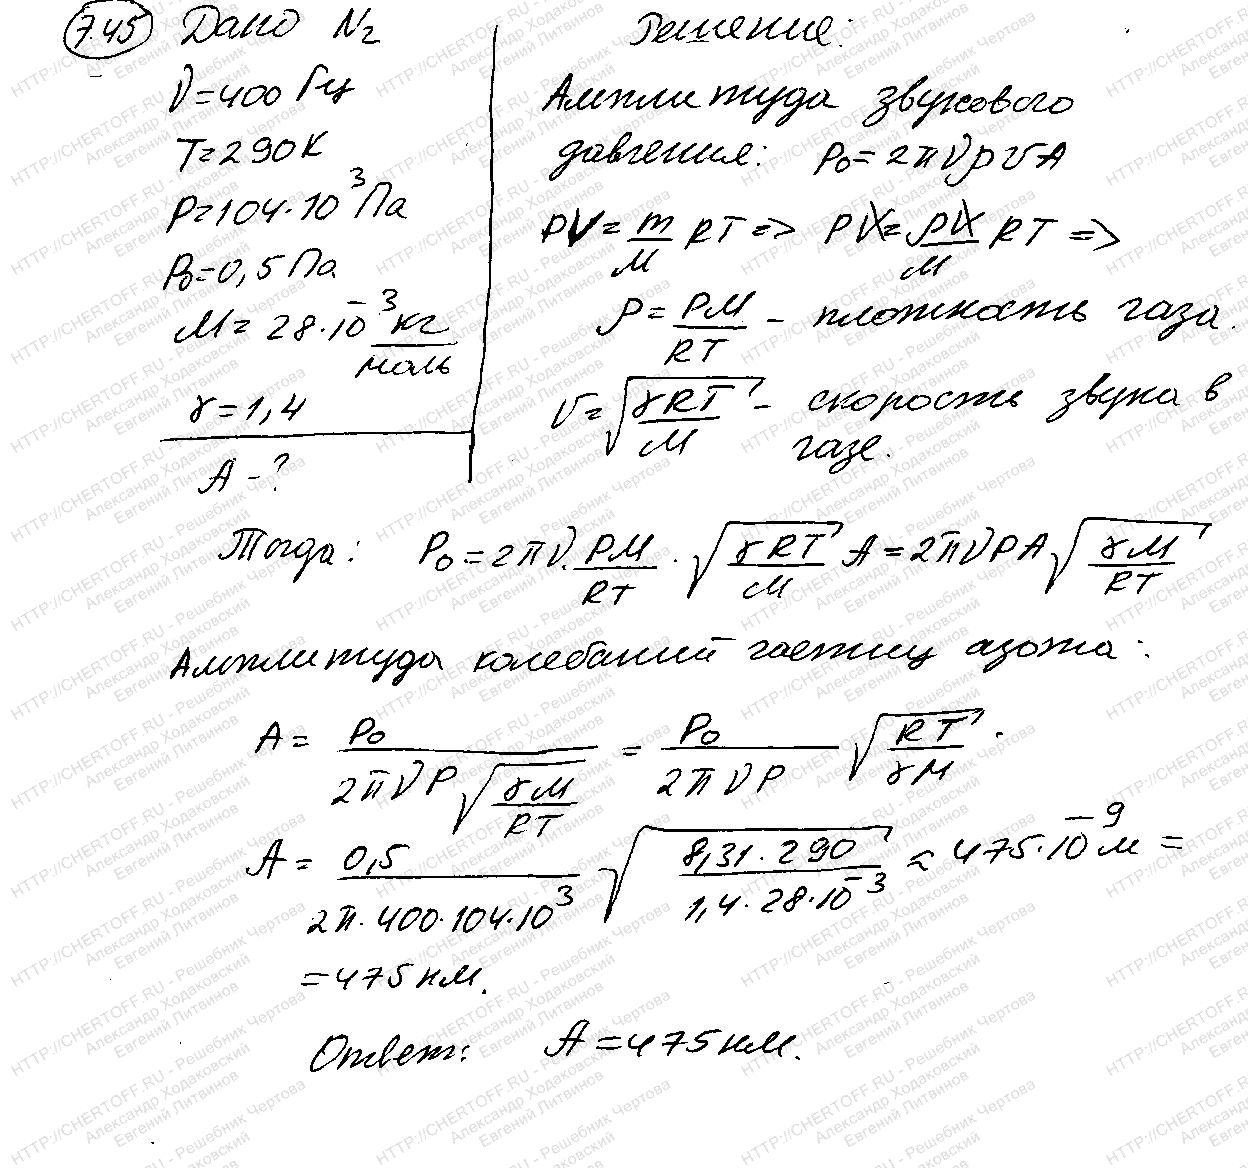 7.45 Дано N₂
ν=400 Гц
T=290К
P=104·10³Па
p₀=0,5Па
M=28·10⁻³ кг/моль
γ=1,4
A-?
Решение:
Амплитуда звукового
давления: p₀=2πνρvA
PV=m/M RT => PV=ρV/M RT =>
ρ=PM/RT - плотность газа.
v=√(γRT/M) - скорость звука в
газе.
Тогда: p₀=2πν·PM/RT·√(γRT/M) A=2πνPA√(γM/RT)
Амплитуда колебаний частиц азота:
A=p₀/(2πνP√(γM/RT))=p₀/(2πνP)√(RT/γM).
A=0,5/(2π·400·104·10³)√(8,31·290/(1,4·28·10⁻³))≈475·10⁻⁹м=
=475нм.
Ответ: A=475нм.
HTTP://CHERTOFF.RU - Решебник Чертова
Александр Ходаковский
Евгений Литвинов